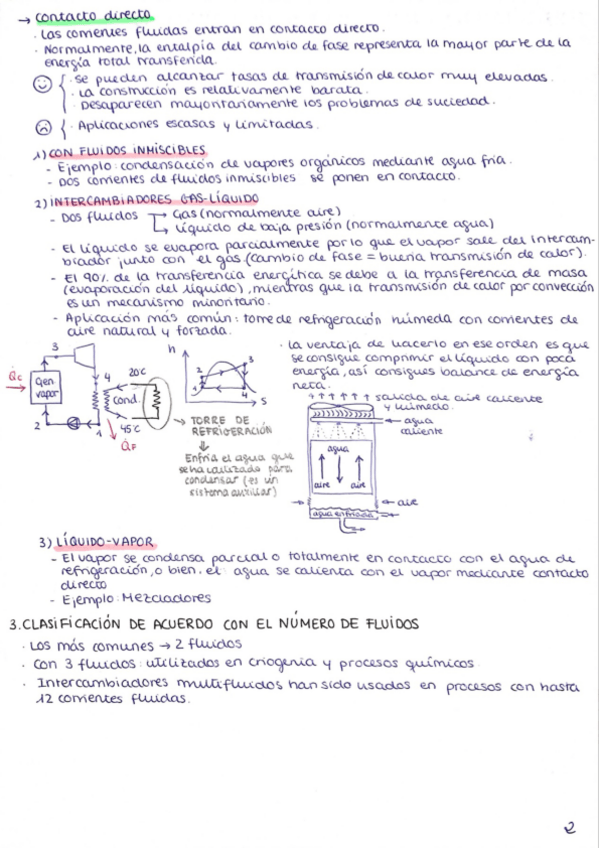 → contacto directo
· Las corrientes fluidas entran en contacto directo.
· Normalmente, la entalpía del cambio de fase representa la mayor parte de la
energía total transferida.
· Se pueden alcanzar tasas de transmisión de calor muy elevadas.
· La construcción es relativamente barata.
· Desaparecen mayoritariamente los problemas de suciedad.
· Aplicaciones escasas y limitadas.
1) CON FLUIDOS INMISCIBLES
- Ejemplo: condensación de vapores orgánicos mediante agua fría.
- Dos corrientes de fluidos inmiscibles se ponen en contacto.
2) INTERCAMBIADORES GAS-LÍQUIDO
- Dos fluidos → Gas (normalmente aire)
→ Líquido de baja presión (normalmente agua)
- El líquido se evapora parcialmente por lo que el vapor sale del intercam-
biador junto con el gas. (Cambio de fase = buena transmisión de calor).
- El 90% de la transferencia energética se debe a la transferencia de masa
(evaporación del líquido), mientras que la transmisión de calor por convección
es un mecanismo minoritario.
- Aplicación más común: torre de refrigeración húmeda con corrientes de
aire natural y forzada.
3
Qc
Gen
vapor
2
4
20°C
Cond.
1
45°C
QF
h
2
3
1
4
s
→ TORRE DE
REFRIGERACIÓN
Enfría el agua que
se ha utilizado para
condensar (es un
sistema auxiliar)
· La ventaja de hacerlo en ese orden es que
se consigue comprimir el líquido con poca
energía, así consigues balance de energía
neta.
salida de aire caliente
y húmedo.
agua
caliente
agua
aire
aire
aire
agua enfriada
3) LÍQUIDO-VAPOR
- El vapor se condensa parcial o totalmente en contacto con el agua de
refrigeración, o bien, el agua se calienta con el vapor mediante contacto
directo
- Ejemplo: Mezcladores
3. CLASIFICACIÓN DE ACUERDO CON EL NÚMERO DE FLUIDOS
· Los más comunes → 2 fluidos
· Con 3 fluidos: utilizados en criogenia y procesos químicos.
· Intercambiadores multifluidos han sido usados en procesos con hasta
12 corrientes fluidas.
2